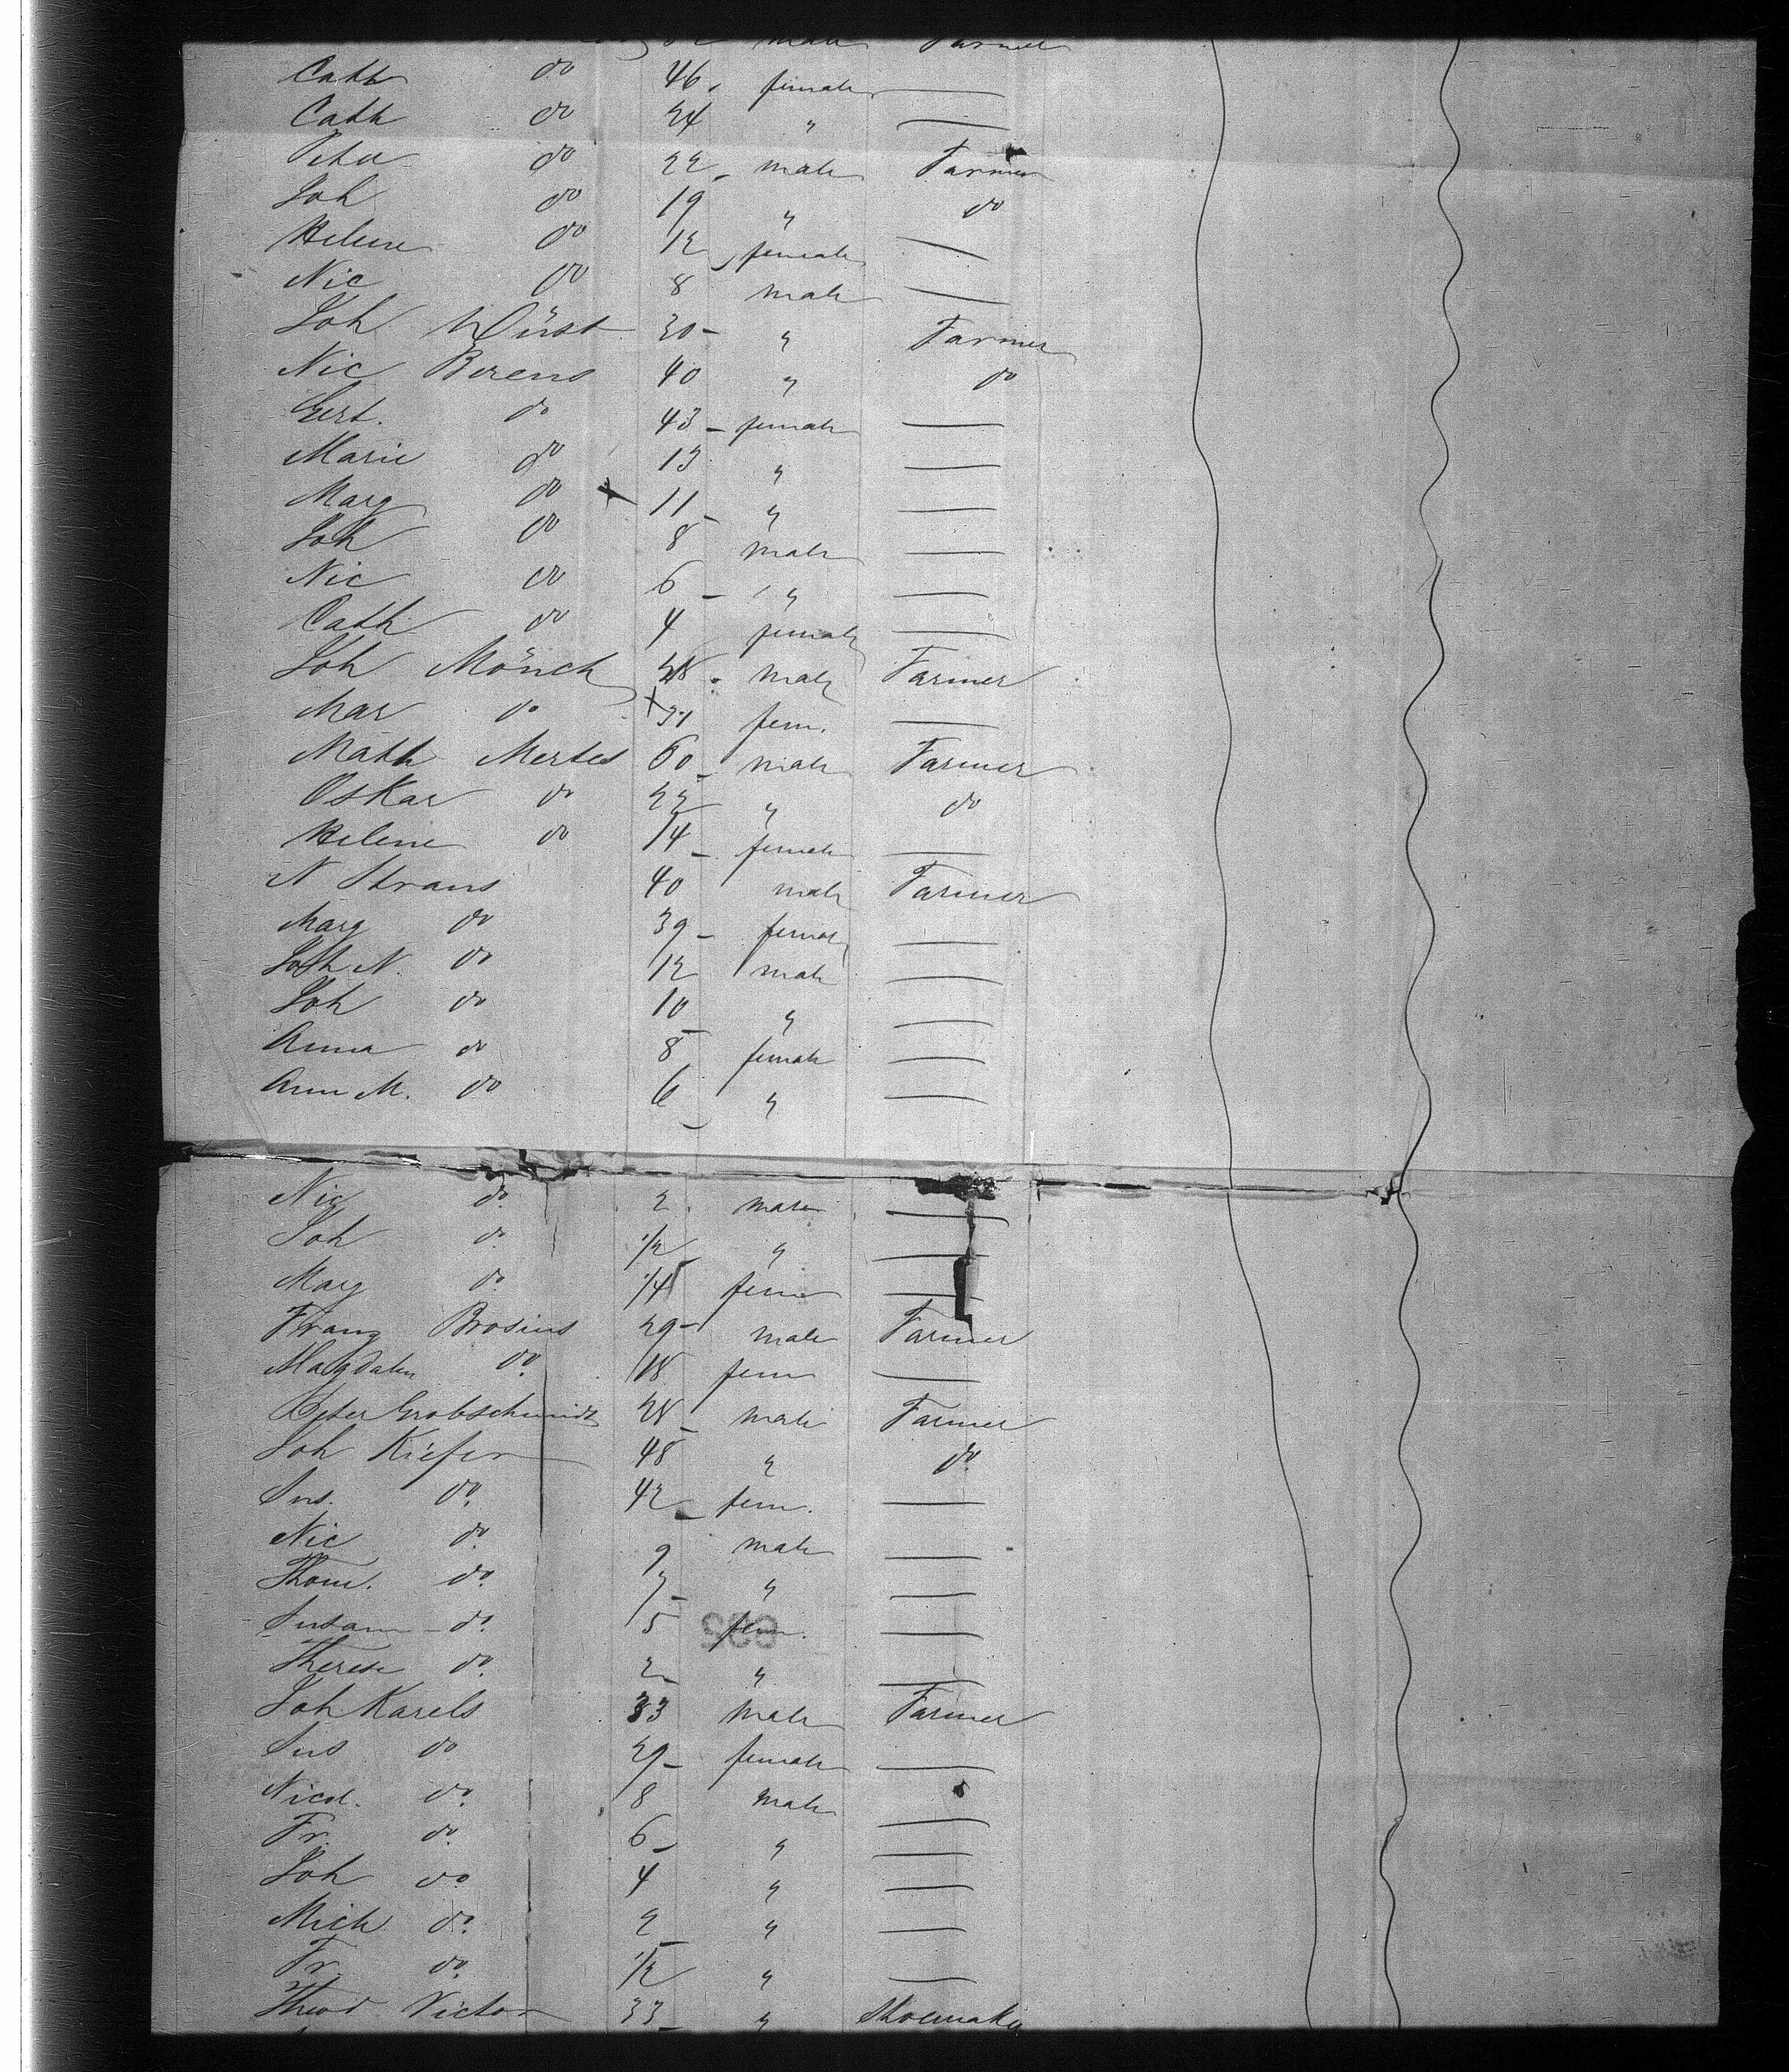 male Farmer
Cath do 46 female —
Cath do 24 " —
Peter do 22 male Farmer
Joh do 19 " do
Helene do 12 female —
Nic do 8 male —
Joh Wüst 30 " Farmer
Nic Berens 40 " do
Gert. do 43 female —
Marie do 13 " —
Marg do 11 " —
Joh do 8 male —
Nic do 6 " —
Cath do 4 female —
Joh Mönch 28 male Farmer
Mar do 31 fem. —
Math Mertes 60 male Farmer
Oskar do 22 " do
Helene do 14 female —
N Straus 40 male Farmer
Marg do 39 female —
Joh N. do 12 male —
Joh do 10 " —
Anna do 8 female —
Ann M. do 6 " —
Nic do. 2 male —
Joh do. 1/2 " —
Marg do. 14 fem —
Franz Brosius 29 male Farmer
Magdalen do. 18 fem —
Peter Grobschmidt 28 male Farmer
Joh Kiefer 48 " do.
Sus. do. 42 fem. —
Nic do. 9 male —
Thom. do. 7 " —
Susann do. 5 fem. —
Therese do. 2 " —
Joh Karels 33 male Farmer
Sus do 29 female —
Nicol. do. 8 male —
Fr. do. 6 " —
Joh do 4 " —
Mich do. 2 " —
Fr. do. 1/2 " —
Theod Victor 33 " Shoemaker